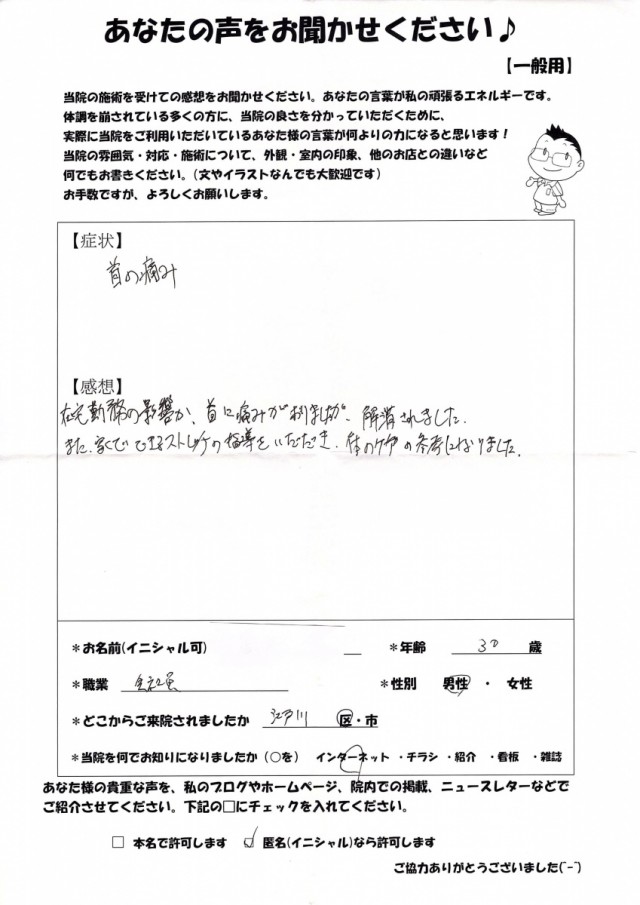 あなたの声をお聞かせください♪
【一般用】
当院の施術を受けての感想をお聞かせください。あなたの言葉が私の頑張るエネルギーです。
体調を崩されている多くの方に、当院の良さを分かっていただくために、
実際に当院をご利用いただいているあなた様の言葉が何よりの力になると思います！
当院の雰囲気・対応・施術について、外観・室内の印象、他のお店との違いなど
何でもお書きください。（文やイラストなんでも大歓迎です）
お手数ですが、よろしくお願いします。
【症状】
首の痛み
【感想】
在宅勤務の影響か、首に痛みがありましたが、解消されました。
また、家でできるストレッチの指導をいただき、体のケアの参考になりました。
＊お名前(イニシャル可) ＊年齢 30 歳
＊職業 会社員 ＊性別 男性 ・ 女性
＊どこからご来院されましたか 江戸川 区・市
＊当院を何でお知りになりましたか（○を） インターネット ・チラシ ・紹介 ・看板 ・雑誌
あなた様の貴重な声を、私のブログやホームページ、院内での掲載、ニュースレターなどで
ご紹介させてください。下記の□にチェックを入れてください。
□ 本名で許可します ☑ 匿名(イニシャル)なら許可します
ご協力ありがとうございました(^-^)